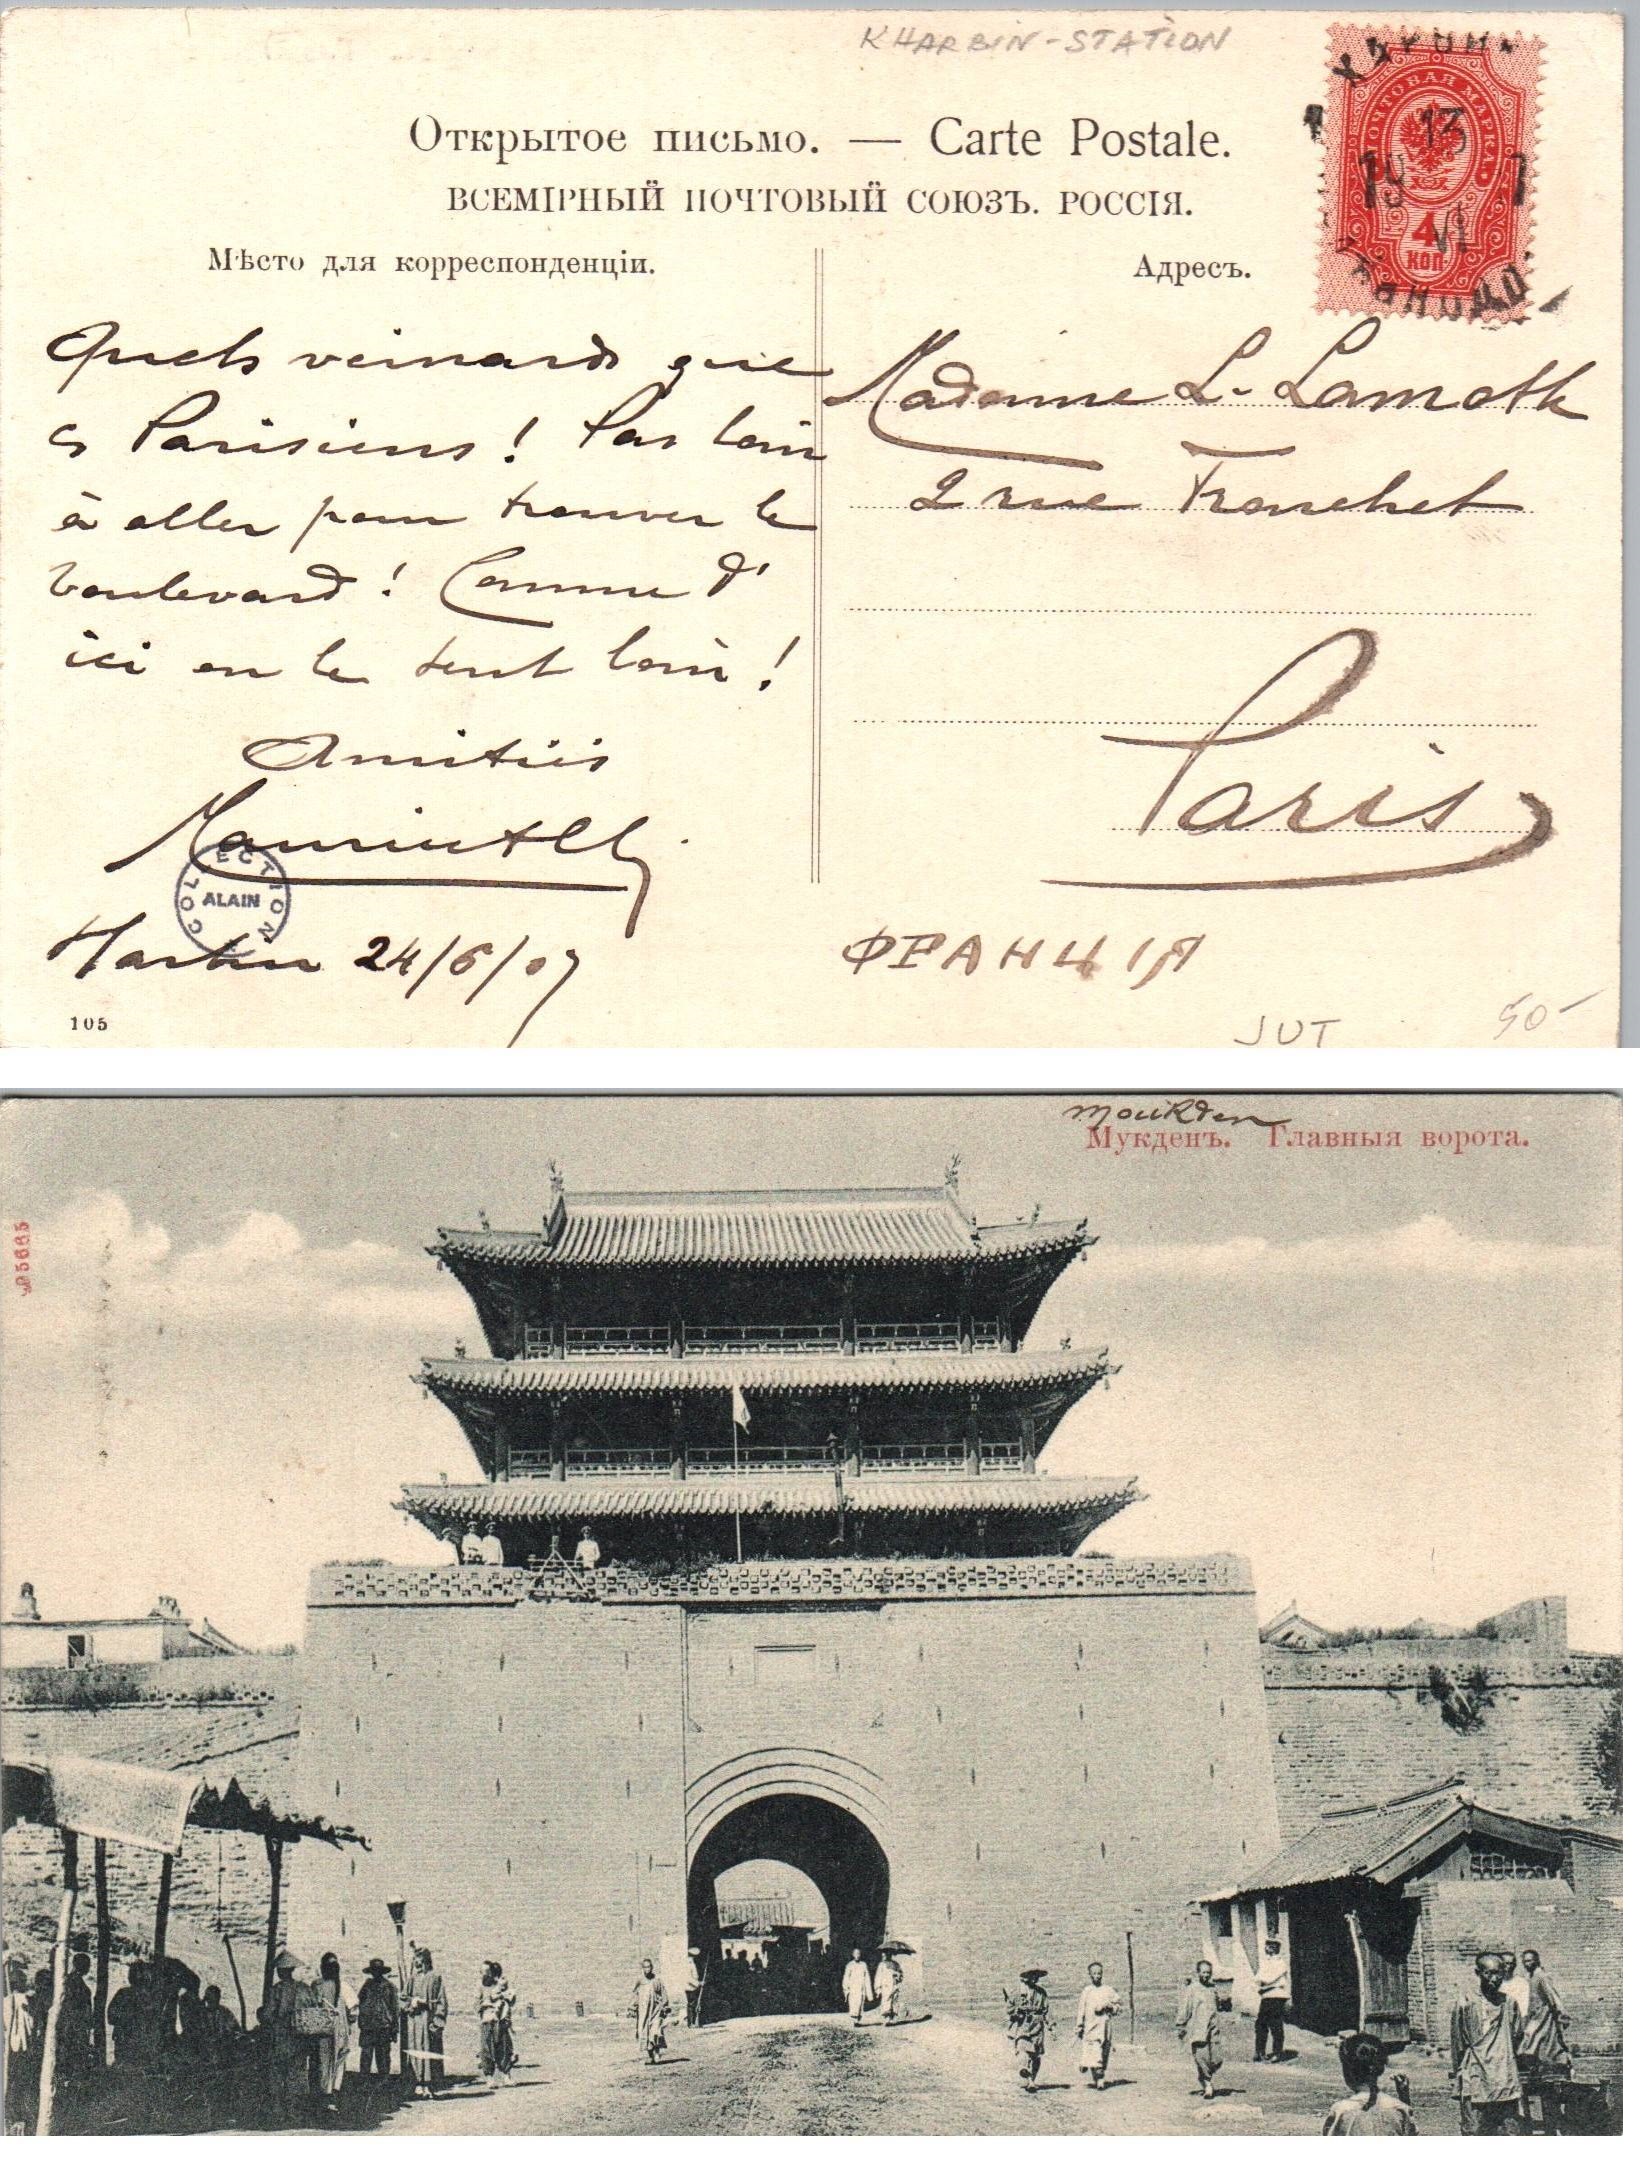 KHARBIN-STATION
Открытое письмо. — Carte Postale.
ВСЕМІРНЫЙ ПОЧТОВЫЙ СОЮЗЪ. РОССІЯ.
Мѣсто для корреспонденціи.
Адресъ.
ПОЧТОВАЯ МАРКА
4
КОП.
13
VI
19 7
Quels veinards que
ces Parisiens! Pas loin
à aller pour trouver le
boulevard! Comme d'
ici on le sent loin!
Amitiés
Harbin 24/6/07
COLLECTION
ALAIN
105
Madame L. Lamothe
2 rue Tronchet
Paris
ФРАНЦІЯ
JUT
50-
Moukden
Мукденъ. Главныя ворота.